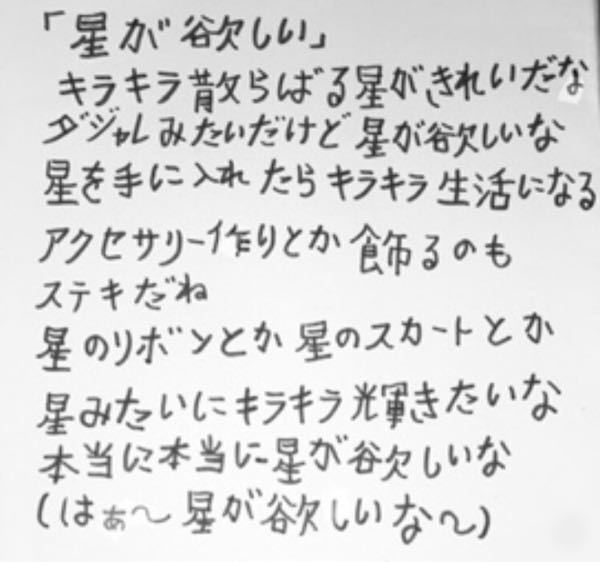 「星が欲しい」
キラキラ散らばる星がきれいだな
ダジャレみたいだけど星が欲しいな
星を手に入れたらキラキラ生活になる
アクセサリー作りとか飾るのも
ステキだね
星のリボンとか星のスカートとか
星みたいにキラキラ輝きたいな
本当に本当に星が欲しいな
(はぁ〜星が欲しいな〜)